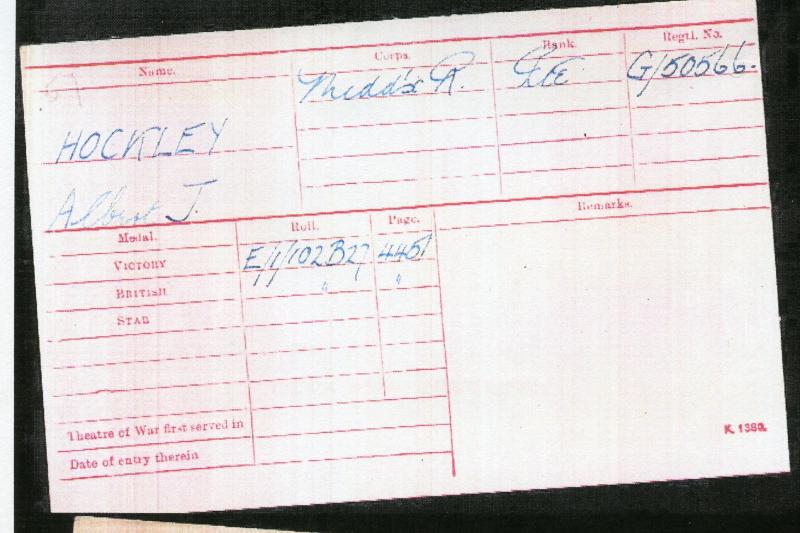 Name. Corps. Rank. Regtl. No.
Midd'x R. Pte G/50566.
HOCKLEY
Albert J.
Medal. Roll. Page. Remarks.
VICTORY E/1/102B27 4451
BRITISH " "
STAR
Theatre of War first served in
Date of entry therein
K. 1380.